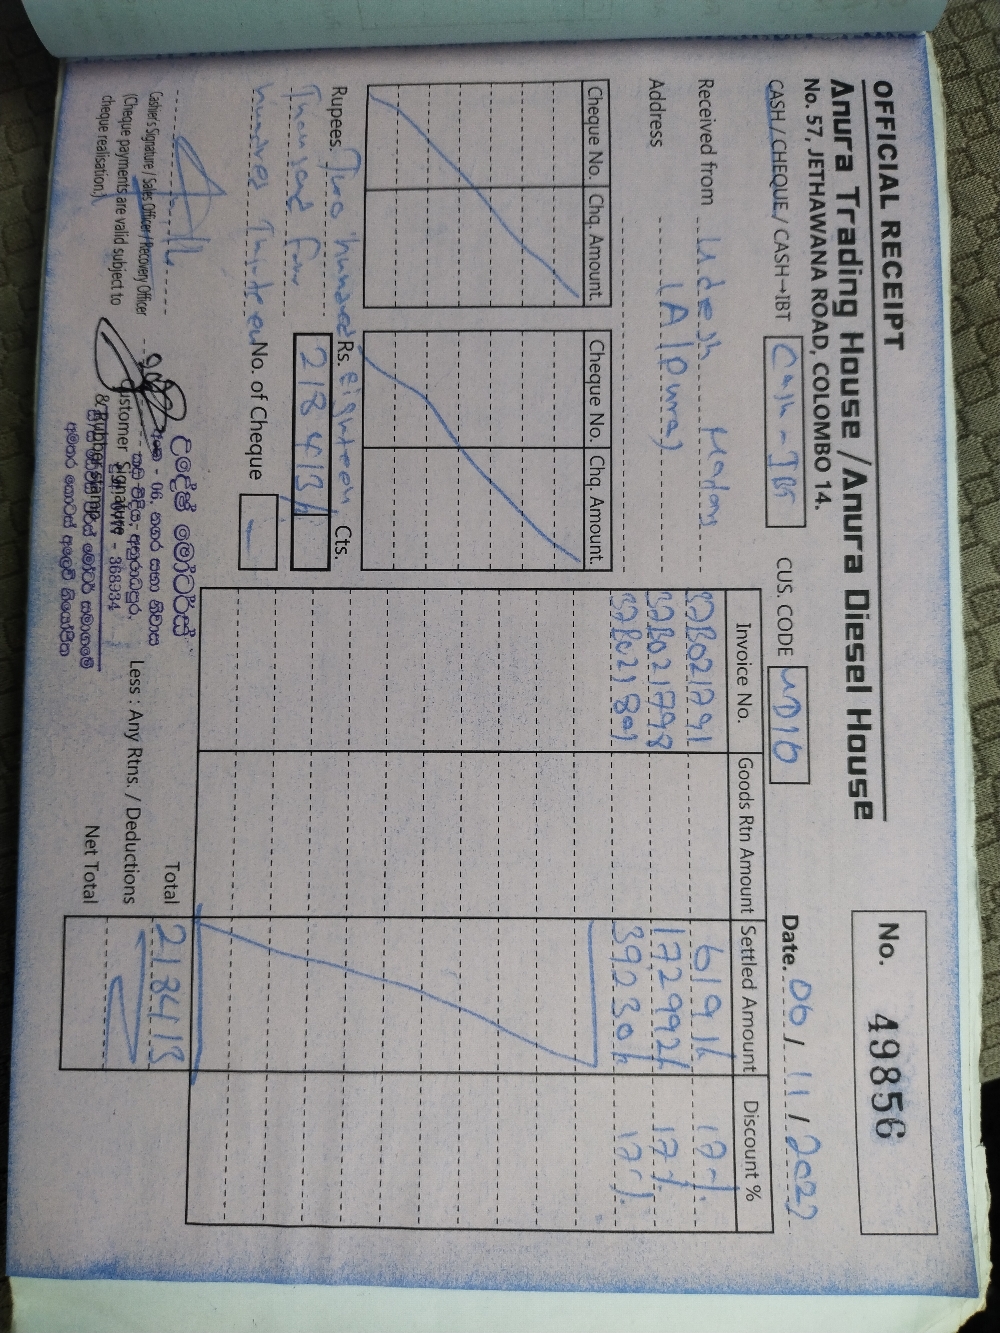 OFFICIAL RECEIPT
No. 49856
Anura Trading House / Anura Diesel House
No. 57, JETHAWANA ROAD, COLOMBO 14.
CASH / CHEQUE / CASH→IBT Cash - IBT
CUS. CODE UD16
Date. 06 / 11 / 2022
Received from Udesh Motors
Address (A/Pura)
Cheque No. Chq. Amount
Cheque No. Chq. Amount
Invoice No. Goods Rtn Amount Settled Amount Discount %
32B021791 6191/- 17%
32B021798 172992/- 17%
32B021801 39230/- 17%
Rupees. Two hundred eighteen
Thousand four
hundred Thirteen
Rs. Cts.
218413/-
No. of Cheque -
Total 218413
Less : Any Rtns. / Deductions
Net Total
Cashier's Signature / Sales Officer / Recovery Officer
(Cheque payments are valid subject to
cheque realisation.)
Customer Signature
& Rubber stamp
උදේශ් මෝටර්ස්
- 368934